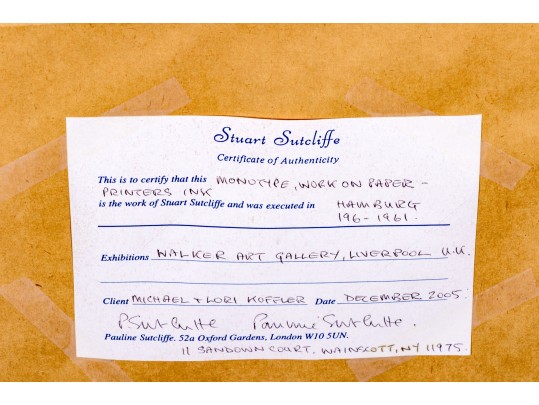 Stuart Sutcliffe
Certificate of Authenticity
This is to certify that this MONOTYPE, WORK ON PAPER -
PRINTERS INK
is the work of Stuart Sutcliffe and was executed in HAMBURG
196-1961.
Exhibitions WALKER ART GALLERY, LIVERPOOL U.K.
Client MICHAEL + LORI KOFFLER Date DECEMBER 2005
P Sutcliffe Pauline Sutcliffe.
Pauline Sutcliffe. 52a Oxford Gardens, London W10 5UN.
11 SANDOWN COURT, WAINSCOTT, NY 11975.